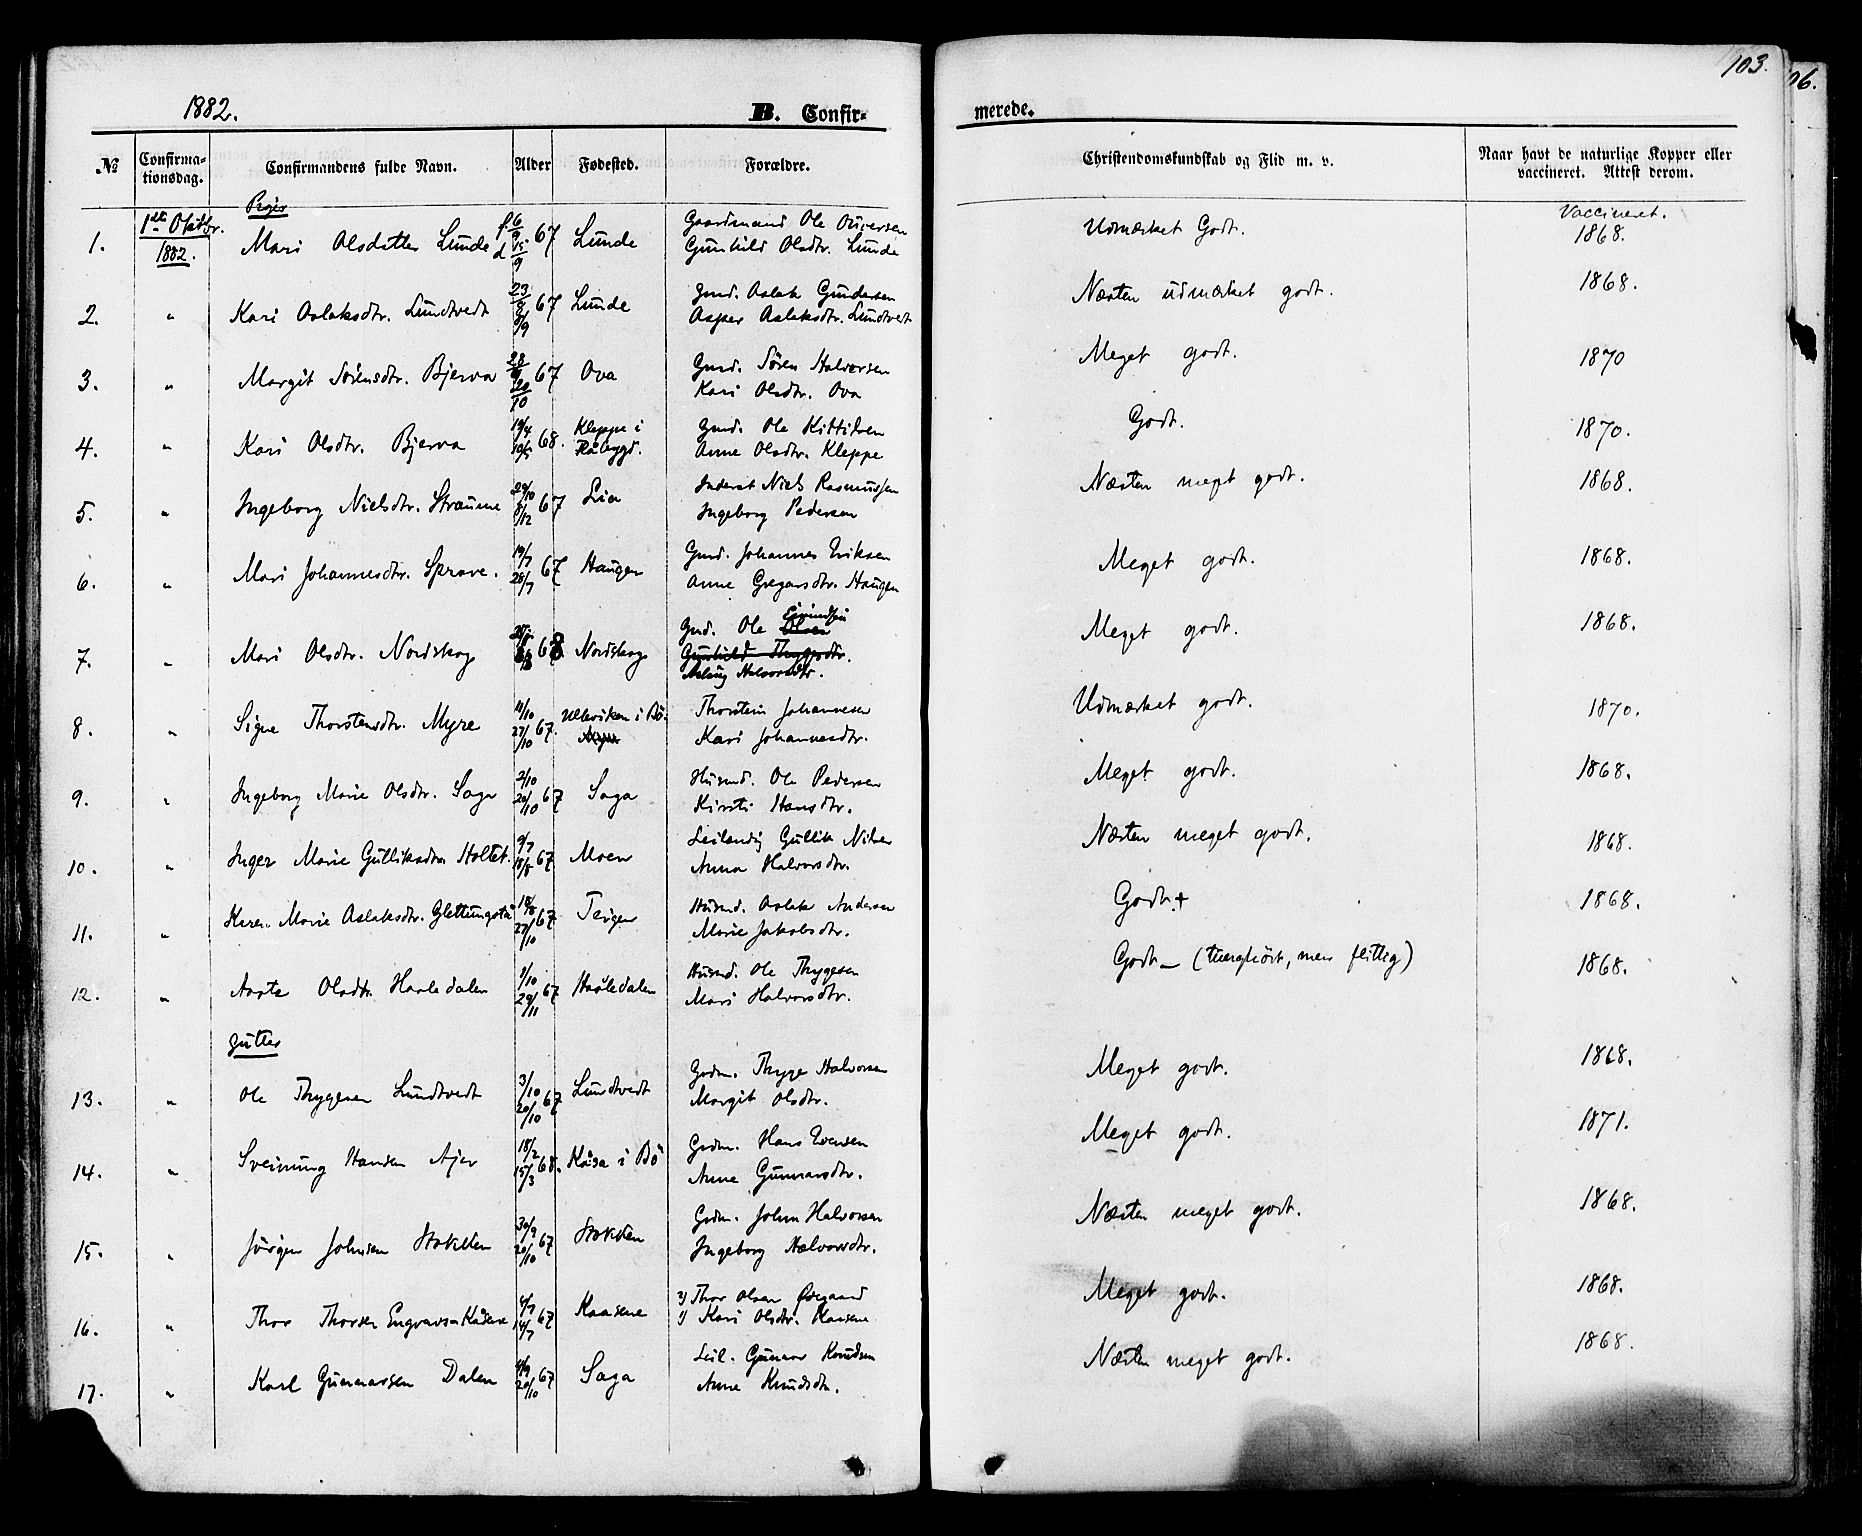 1882.
B. Confir-
merede.
103.
06.
№ Confirma-tionsdag. Confirmandens fulde Navn. Alder Fødested. Forældre. Christendomskundskab og Flid m. v. Naar havt de naturlige Kopper eller vaccineret. Attest derom.
Piger
1. 1ste Oktbr. 1882. Mari Olsdatter Lunde f. 6/9 67 d 15/9 Lunde Gaardmand Ole Gunhild Olsdtr. Lunde Udmærket Godt. Vaccineret. 1868.
2. " Kari Aslaksdtr. Lundtvedt 23/8 67 8/9 Lunde Gmd. Aslak Gundersen Asper Aslaksdtr. Lundtvedt Næsten udmærket godt. 1868.
3. " Margit Sørensdtr. Bjerva 28/9 67 20/10 Ova Gmd. Søren Halvorsen Kari Olsdtr. Ova Meget godt. 1870
4. " Kari Olsdtr. Bjerva 19/4 68. 10/5 Kleppe i Råbygd. Gmd. Ole Kittilsen Anne Olsdtr. Kleppe Godt. 1870.
5. " Ingeborg Nielsdtr. Straume 29/10 67 8/12 Lia Inderst Niels Rasmussen Ingeborg Pedersen Næsten meget godt. 1868.
6. " Mari Johannesdtr. Sprave. 19/7 67 28/7 Haugen Gmd. Johannes Eriksen Anne Gregarsdtr. Haugen Meget godt. 1868.
7. " Mari Olsdtr. Nordskog 68 Nordskog Gmd. Ole Olsen Eivindsen Gunhild Thygesdtr. Aslaug Halvorsdtr. Meget godt. 1868.
8. " Signe Thorstensdtr. Myre 11/10 67. 27/10 Ulleviken i Bö. Myre Thorstein Johannesen Kari Johannesdtr. Udmærket godt. 1870.
9. " Ingeborg Marie Olsdtr. Saga 2/10 67 20/10 Saga Husmd. Ole Pedersen Kirsti Hansdtr. Meget godt. 1868.
10. " Inger Marie Gulliksdtr. Holtet. 9/7 67 18/8 Moen Leilending Gullik Nilsen Anna Halvorsdtr. Næsten meget godt. 1868.
11. " Karen Marie Aslaksdtr. 18/8 67 27/10 Teigen Husmd. Aslak Andersen Marie Jakobsdtr. Godt.+ 1868.
12. " Aaste Olsdtr. Haatedalen 1/10 67 29/11 Haatedalen Husmd. Ole Thygesen Mari Halvorsdtr. Godt – (tunghört, men flittig) 1868.
Gutter
13. " Ole Thygesen Lundtvedt 3/10 67 20/10 Lundtvedt Grdm. Thyge Halvorsen Margit Olsdtr. Meget godt. 1868.
14. " Sveinung Hansen Ajer 18/2 68. 15/3 Kåsa i Bö Grdm. Hans Evensen Anne Gunnarsdtr. Meget godt. 1871.
15. " Jörgen Johnsen Stokken 30/9 67 20/10 Stokken Grdm. John Halvorsen Ingeborg Halvorsdtr. Næsten meget godt. 1868.
16. " Thor Thorsen Engravs-Kåsene 4/7 67 14/7 Kaasene 2) Thor Olsen Øvegaard 1) Kari Olsdtr. Kaasene Meget godt. 1868.
17. " Karl Gunnarsen Dalen 4/9 67 20/10 Saga Leil. Gunnar Knudsen Anne Knudsdtr. Næsten meget godt. 1868.